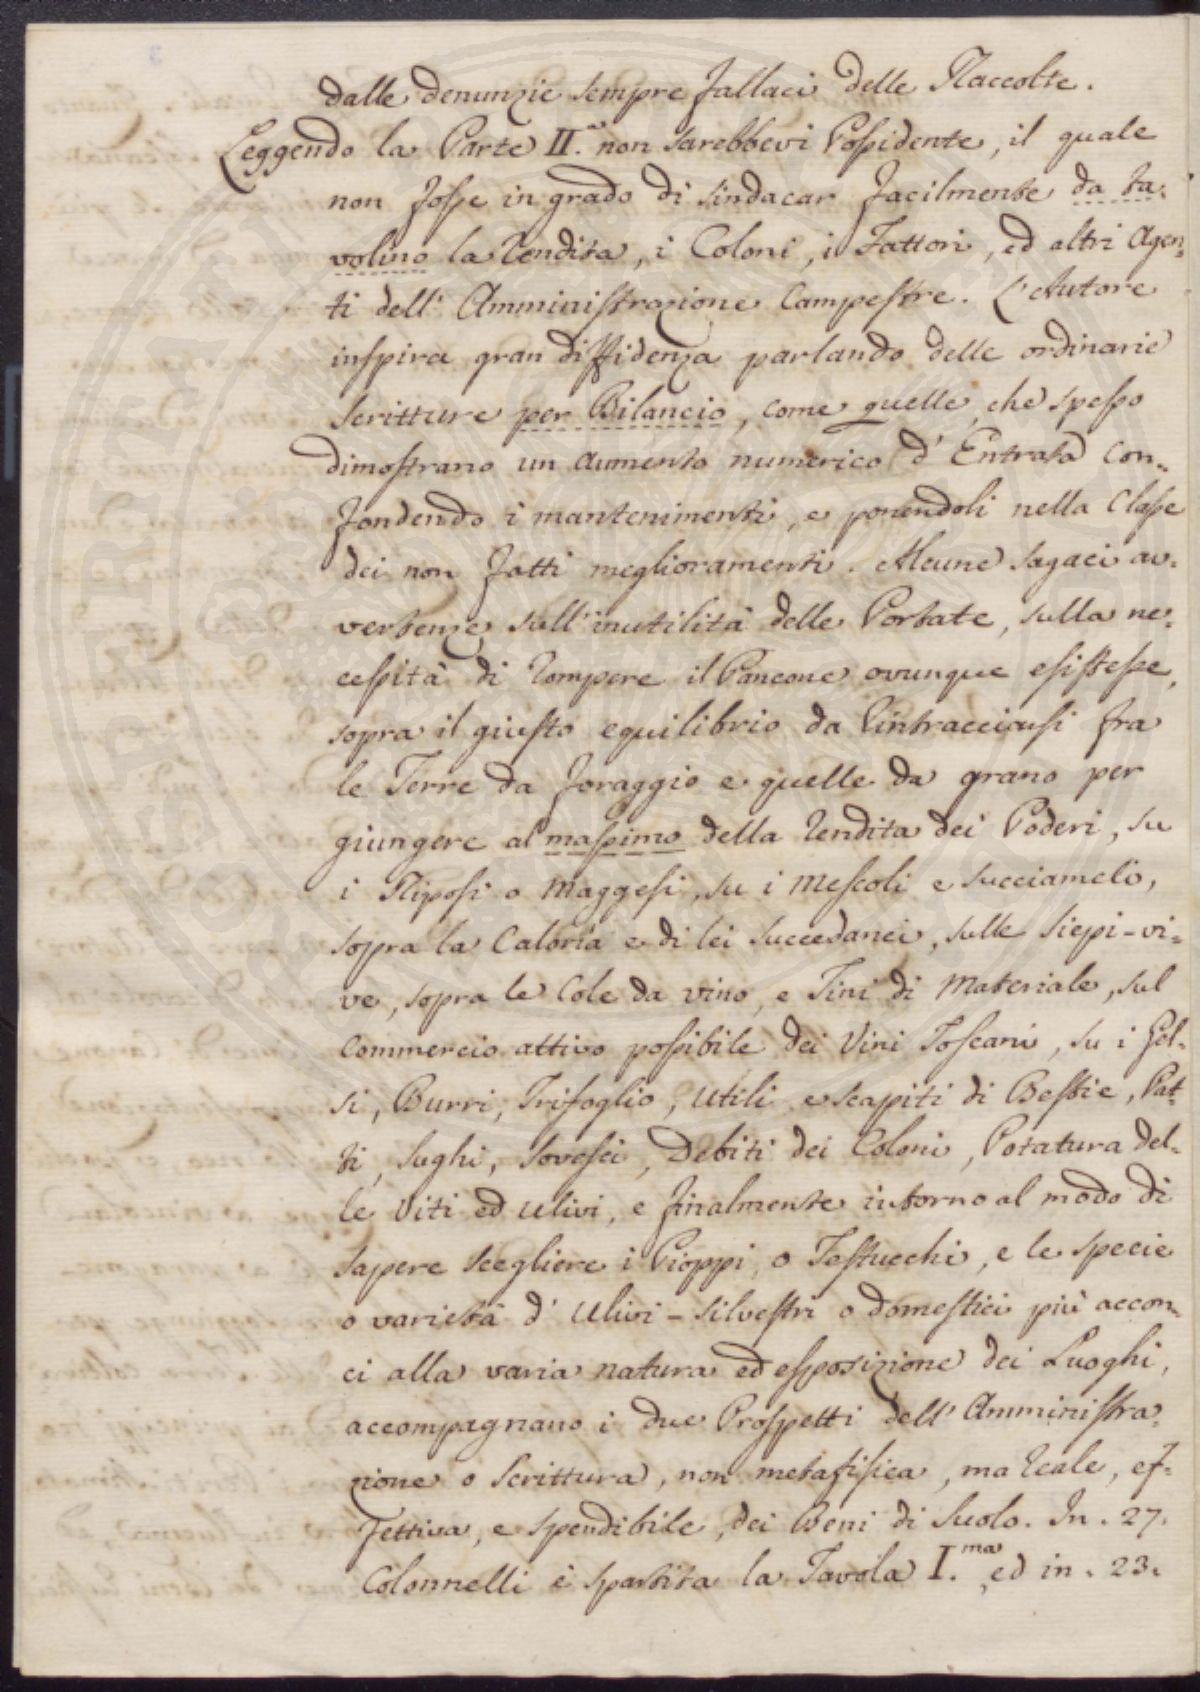 dalle denunzie sempre fallaci delle Raccolte.
Leggendo la Parte II.a non sarebbevi Possidente, il quale
non fosse in grado di sindacar facilmente da ta-
volino la Rendita, i Coloni, i Fattori, ed altri Agen-
ti dell' Amministrazione Campestre. L'Autore
inspira gran diffidenza parlando delle ordinarie
Scritture per Bilancio, come quelle, che spesso
dimostrano un aumento numerico d' Entrata con-
fondendo i mantenimenti, e ponendoli nella Classe
dei non fatti meglioramenti. Alcune sagaci av-
vertenze sull' inutilità delle Portate, sulla ne-
cessità di rompere il Pancone ovunque esistesse,
sopra il giusto equilibrio da rintracciarsi fra
le Terre da foraggio e quelle da grano per
giungere al massimo della rendita dei Poderi, su
i Riposi o Maggesi, su i Mescoli e Succiameli,
sopra la Caloria e di lei succedanei, sulle siepi-vi-
ve, sopra le Cole da vino, e Tini di Materiale, sul
Commercio attivo possibile dei Vini Toscani, su i Gel-
si, Burri, Trifoglio, Utili e scapiti di Bestie, Pat-
ti, Sughi, Sovesci, Debiti dei Coloni, Potatura del-
le Viti ed Ulivi, e finalmente intorno al modo di
sapere scegliere i Pioppi, o Testucchi, e le specie
o varietà d' Ulivi-silvestri o domestici più accon-
ci alla varia natura ed esposizione dei Luoghi,
accompagnano i due Prospetti dell' Amministra-
zione o Scrittura, non metafisica, ma reale, ef-
fettiva, e spendibile, dei Beni di Suolo. In. 27.
Colonnelli è spartita la Tavola I.ma, ed in. 23.